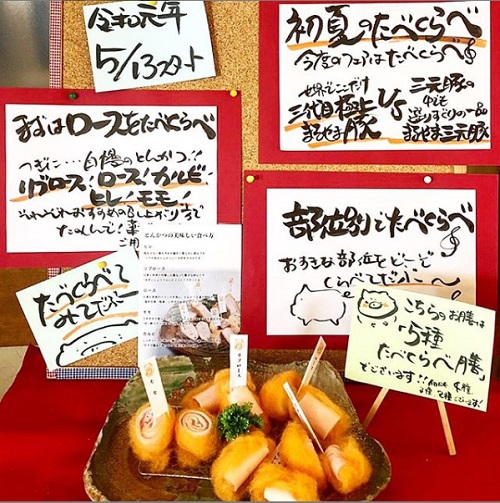 令和元年
5/13スタート
初夏のたべくらべ
今度のフェアはたべくらべ
世界でここだけ
三代目極上
まるやま豚
VS
三元豚の
中でも
選りすぐりの一品
まるやま三元豚
まずはロースをたべくらべ
つぎに…自慢のとんかつ!!
リブロース!ロース!カルビ!
ヒレ!モモ!
それぞれおすすめの召し上がり方で
たのしんで!
部位別でたべくらべ
お好きな部位をピースで
くらべてだホー
たべくらべて
みてだホー
とんかつの美味しい食べ方
ヒレ
リブロース
ロース
こちらのお膳は
「5種
たべくらべ膳」
でございます!!
モモ